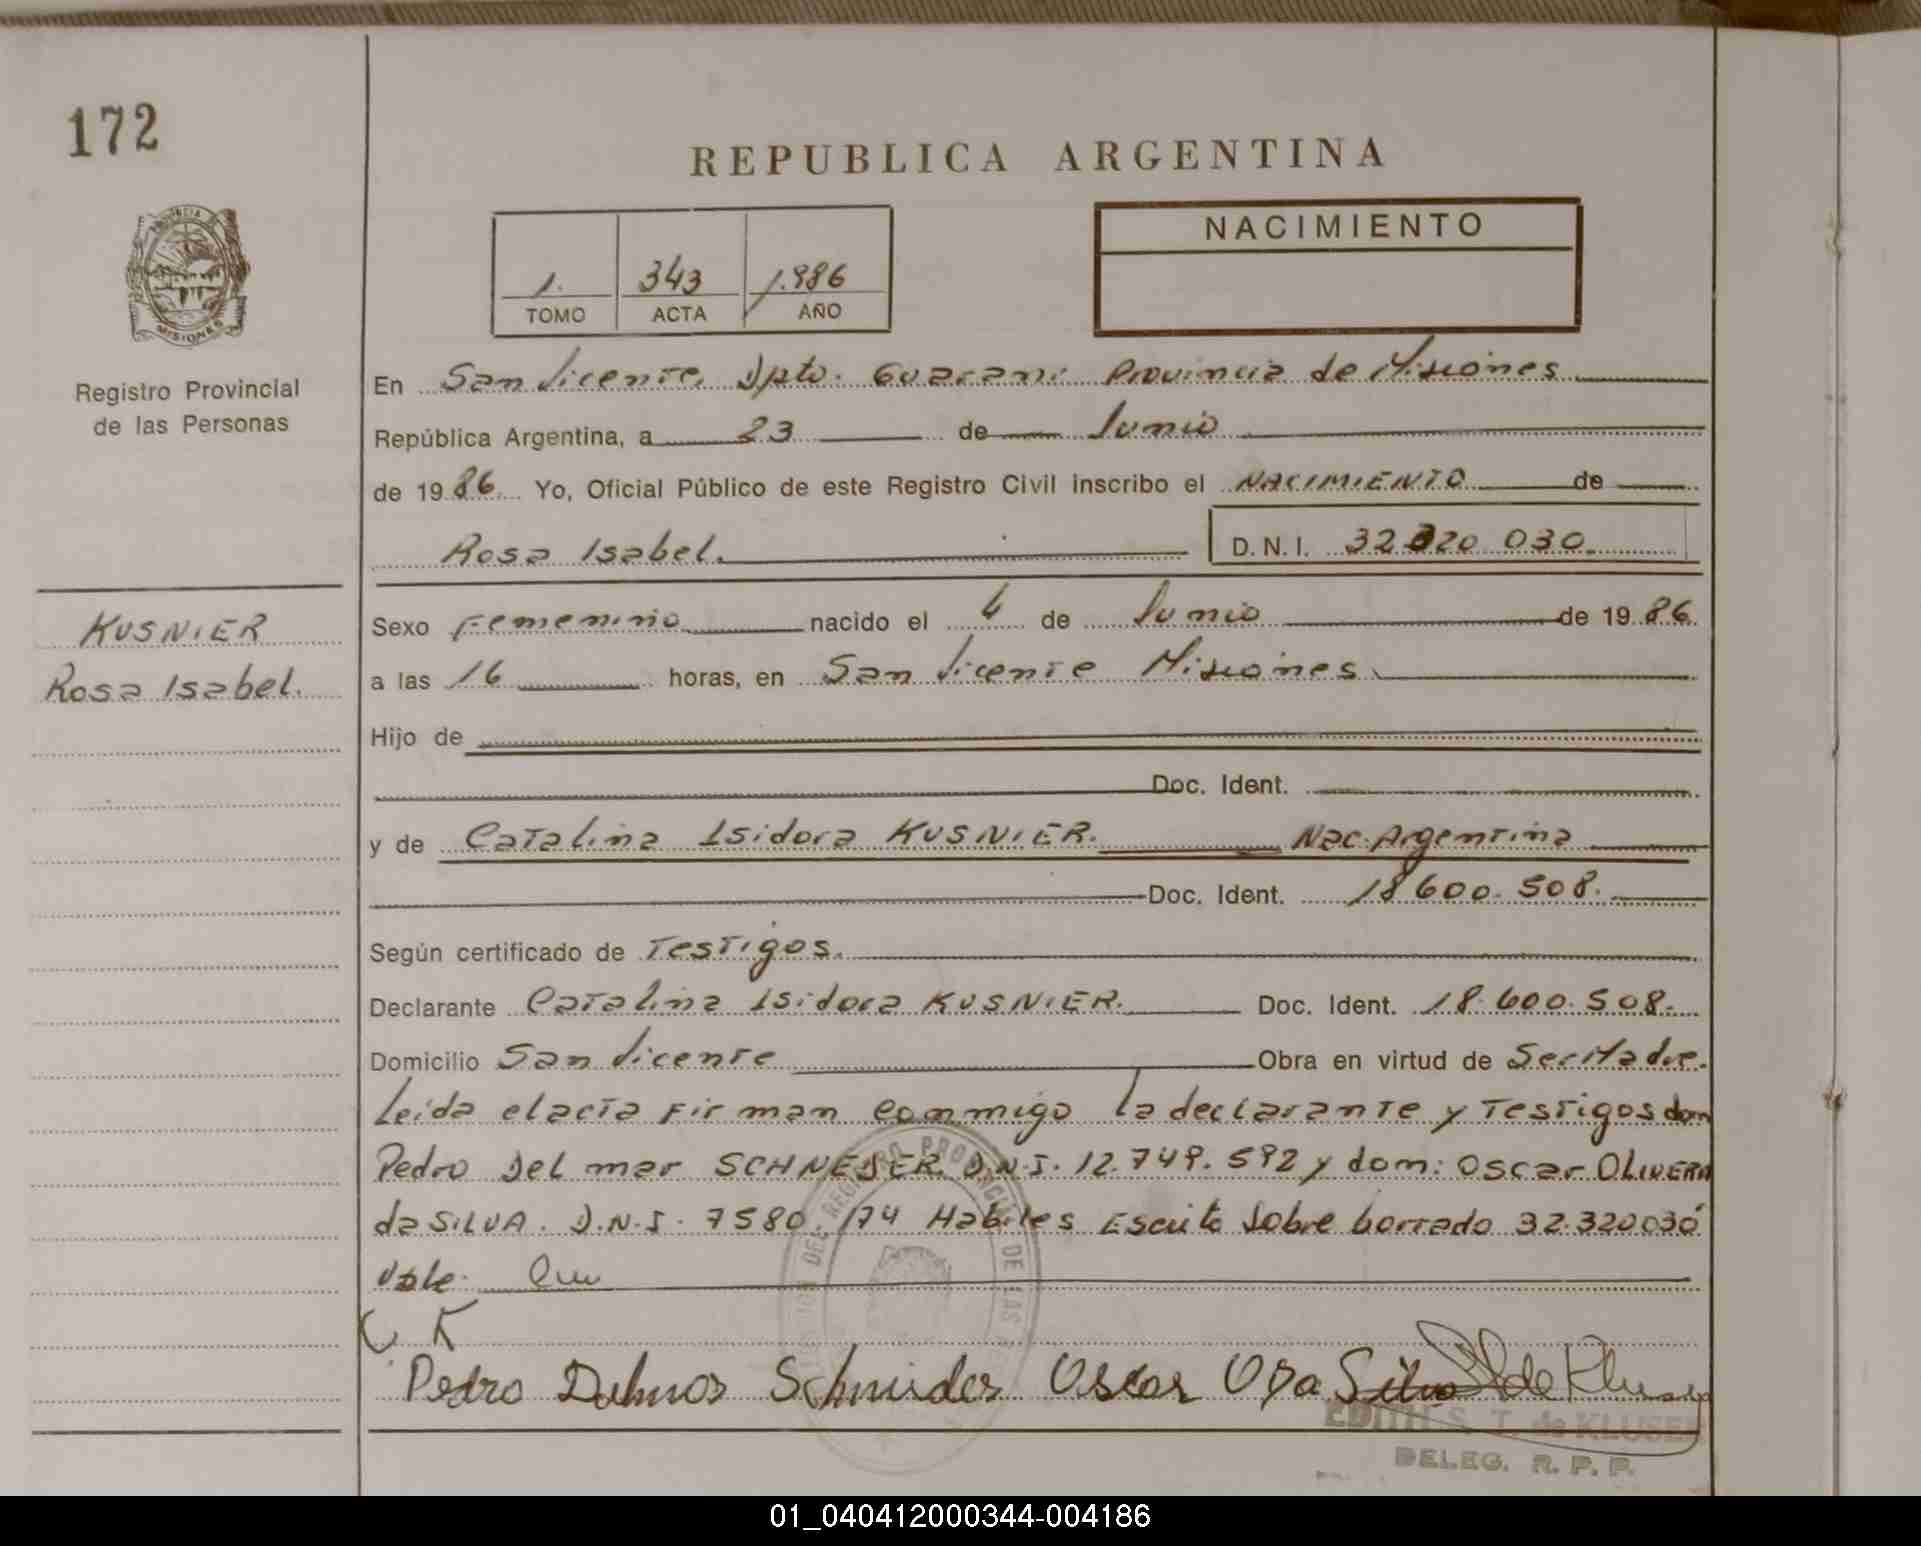 172
REPUBLICA ARGENTINA
NACIMIENTO
1. 343 1.986
TOMO ACTA AÑO
PROVINCIA DE
MISIONES
Registro Provincial
de las Personas
En San Vicente, Dpto. Guarani Provincia de Misiones
República Argentina, a 23 de Junio
de 1986. Yo, Oficial Público de este Registro Civil inscribo el NACIMIENTO de
Rosa Isabel. D.N.I. 32320 030
KUSNIER
Rosa Isabel.
Sexo Femenino nacido el 6 de Junio de 1986.
a las 16 horas, en San Vicente Misiones
Hijo de
Doc. Ident.
y de Catalina Isidora KUSNIER. Nac. Argentina
Doc. Ident. 18600.508.
Según certificado de Testigos.
Declarante Catalina Isidora KUSNIER. Doc. Ident. 18.600.508.
Domicilio San Vicente Obra en virtud de Ser Madre.
Leída el acta Firman conmigo la declarante y Testigos don
Pedro Delmar SCHNEDER. D.N.I. 12.749.592 y dom: Oscar OLIVERA
da SILVA. D.N.I. 7580.174 Habiles Escrito Sobre borrado 32.320030
Vale.
C K
Pedro Schneider Oscar Silva
EDITH S. T. de KLUSER
DELEG. R. P. P.
01_040412000344-004186